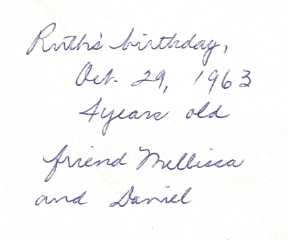 Ruth's birthday,
Oct. 29, 1963
4 years old
friend Mellissa
and Daniel